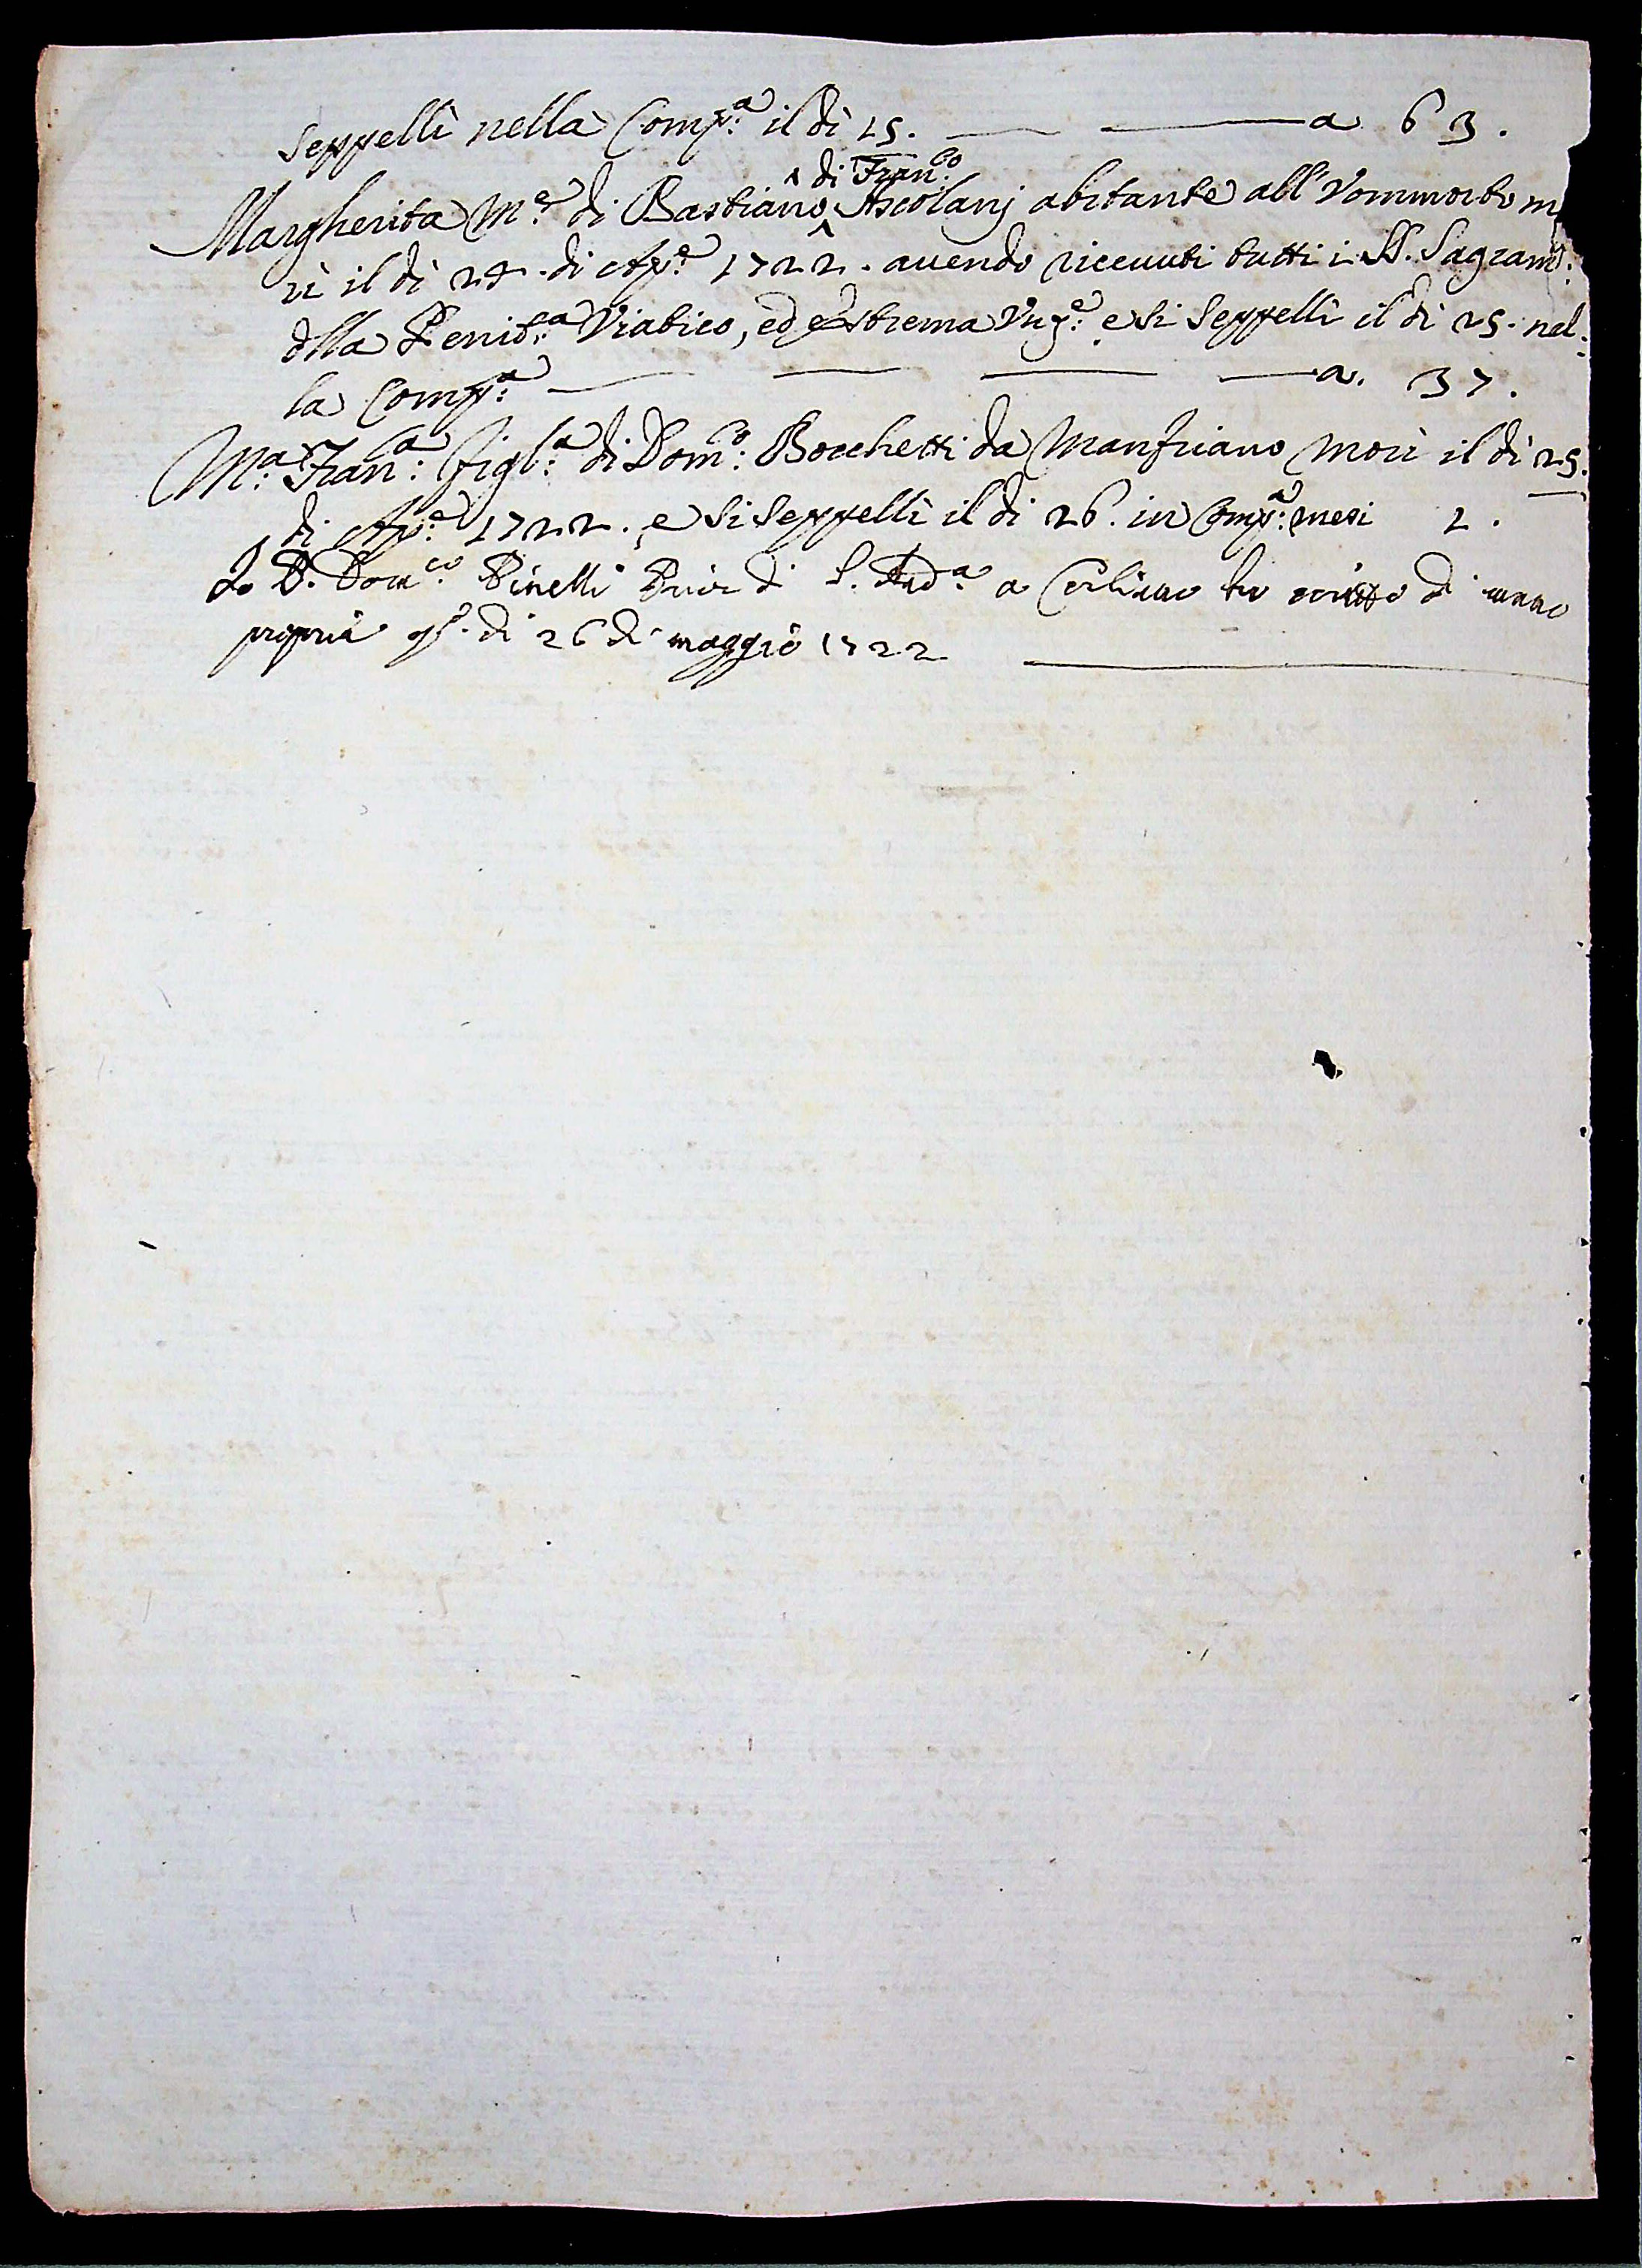 Seppellì nella Comp:a il dì 15. — — a 63.
^ di Fran:co
Margherita M:e di Bastiano ^ Ascolanj abitante all'Vommorto mo
rì il dì 24. di Ap:e 1722. auendo riceuuti tutti i SS. Sagram:ti
dlla Penit:za Viatico, ed Estrema Vnz:e e si Seppellì il dì 25. nel:
la Comp:a — — — — a. 37.
M:a Fran:ca figl:a di Dom:co Bocchetti da Manfriano morì il dì 25.
di Ap:e 1722. e si Seppellì il dì 26. in Comp:a mesi 2.
Io D. Dom:co Pinelli Prior di S. And:a a Cerliano ho scritto di mano
propria q.to dì 26 di maggio 1722